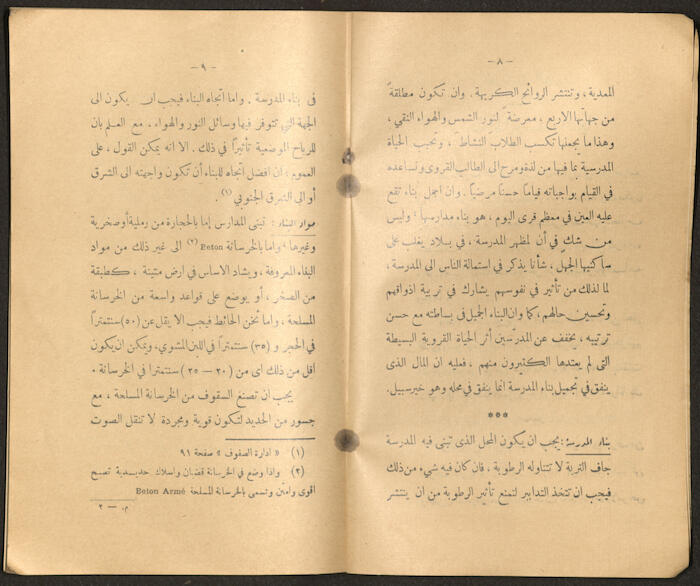 — ٨ —
المعدية ، وتنتشر الروائح الكريهة . وان تكون مطلقةً
من جهاتها الاربع ، معرضة ً لنور الشمس والهواء النقي ،
وهذا ما يجعلها تكسب الطلاب النشاط َ ، وتحبب الحياة
المدرسية بما فيها من لذة ومرح الى الطالب القروي وتساعده
في القيام بواجباته قياماً حسناً مرضياً . وان اجمل بناء تقع
عليه العين في معظم قرى اليوم ، هو بناء مدارسها ؛ وليس
من شك في أن لمظهر المدرسة ، في بلاد يغلب على
ساكنيها الجهل ، شأنا يذكر في استمالة الناس الى المدرسة ،
لما لذلك من تأثير في نفوسهم يشارك في تربية اذواقهم
وتحسين حالهم ، كما وان البناء الجميل في بساطته مع حسن
ترتيبه ، يخفف عن المدرّسين أثر الحياة القروية البسيطة
التى لم يعتدها الكثيرون منهم . فعليه ان المال الذى
ينفق في تجميل بناء المدرسة انما ينفق في محله وهو خير سبيل.
***
بناء المدرسة : يجب ان يكون المحل الذى تبنى فيه المدرسة
جاف التربة لا تتناوله الرطوبة ، فان كان فيه شيء من ذلك
فيجب ان تتخذ التدابير لتمنع تأثير الرطوبة من ان ينتشر
— ٩ —
فى بناء المدرسة . واما اتجاه البناء فيجب ان يكون الى
الجهة التي تتوفر فيها وسائل النور والهواء . مع العلم بان
للرياح الموضعية تأثيرًا في ذلك . الا انه يمكن القول ، على
العموم : ان افضل اتجاه للبناء أن تكون واجهته الى الشرق
أو الى الشرق الجنوبي (١) .
مواد البناء : تبنى المدارس إما بالحجارة من رملية أو صخرية
وغيرها ، واما بالخرسانة Beton (٢) الى غير ذلك من مواد
البناء المعروفة ، ويشاد الاساس في ارض متينة ، كطبقة
من الصخر ، أو يوضع على قواعد واسعة من الخرسانة
المسلحة ، واما ثخن الحائط فيجب الا يقل عن (٥٠) سنتمتراً
في الحجر و (٣٥) سنتمتراً في اللبن المشوي ، ويمكن ان يكون
اقل من ذلك اى من (٢٠ — ٢٥) سنتمترا في الخرسانة .
يجب ان تصنع السقوف من الخرسانة المسلحة ، مع
جسور من الحديد لتكون قوية ومجردة لا تنقل الصوت
(١) « ادارة الصفوف » صفحة ٩١
(٢) واذا وضع في الخرسانة قضبان واسلاك حديدية تصبح
اقوى وامتن وتسمى بالخرسانة المسلحة Beton Armé
م. — ٢